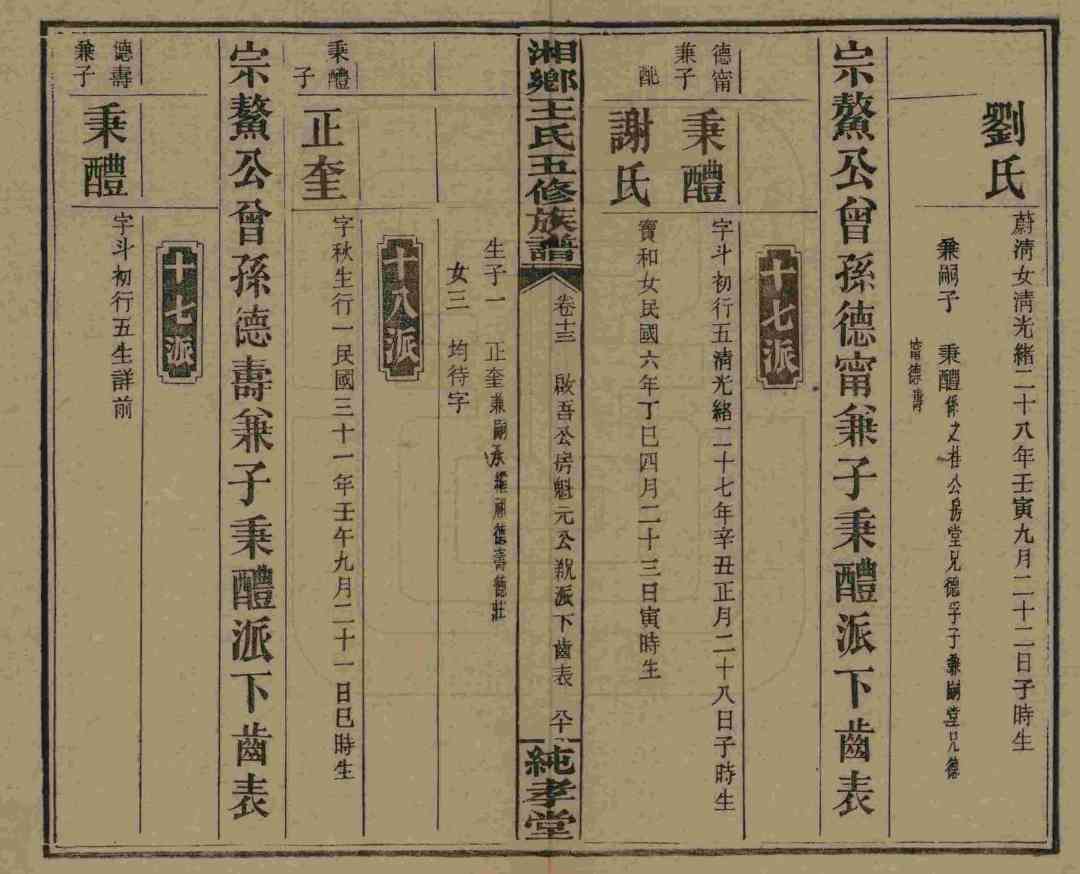 劉氏
蔚淸女淸光緒二十八年壬寅九月二十二日子時生
兼嗣子 秉醴係之桂公房堂兄德孚子兼嗣堂兄德
甯德壽
宗鰲公曾孫德甯兼子秉醴派下齒表
十七派
德甯
兼子
秉醴
字斗初行五淸光緒二十七年辛丑正月二十八日子時生
配
謝氏
寶和女民國六年丁巳四月二十三日寅時生
湘鄉王氏五修族譜
卷十三 啟吾公房魁元公 派下齒表 卆
純孝堂
生子一 正奎兼嗣承繼嗣德壽德莊
女三 均待字
十八派
秉醴
子
正奎
字秋生行一民國三十一年壬午九月二十一日巳時生
宗鰲公曾孫德壽兼子秉醴派下齒表
十七派
德壽
兼子
秉醴
字斗初行五生詳前